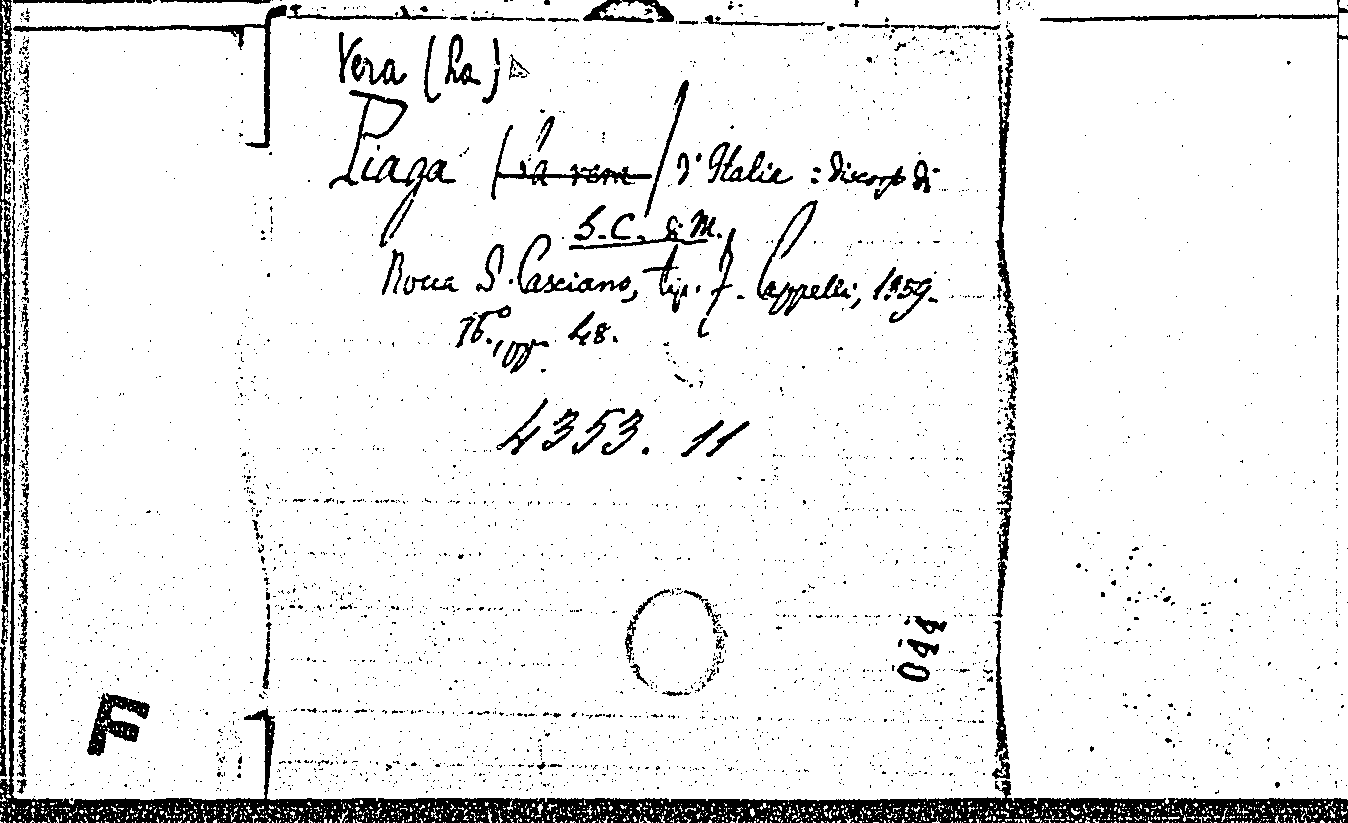 Vera (La)
Piaga (La vera) d'Italia : discorso di
S. C. di M.
Rocca S. Casciano, tip. F. Cappelli, 1859.
16.°, pp. 48.
4353. 11
044
F